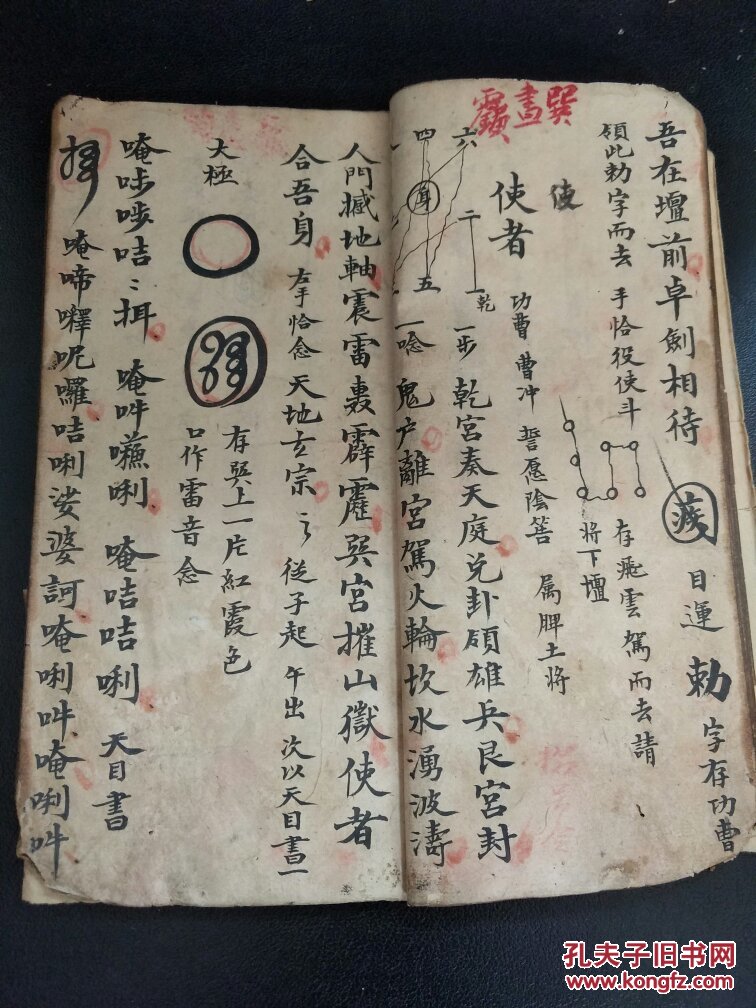 吾在壇前卓劍相待
目運勅字存功曹
領此勅字而去 手恰役使斗
存飛雲駕而去請
將下壇
使者 功曹 曹冲 誓愿陰答 屬脾土將
巽畫
六 二 一 乾
四 五
一步 乾宮奏天庭兑卦領雄兵艮宮封
一唸 鬼户離宮駕火輪坎水湧波濤
人門撼地軸震雷轟霹靂巽宮摧山獄使者
合吾身 右手恰念 天地玄宗 從子起 午出 次以天目書一
大極
存巽上一片紅霞色
口作雷音念
唵 咭 唵吽 唎 唵咭咭唎 天目書
唵啼 呢囉咭唎娑婆訶唵唎吽唵唎吽
孔夫子旧书网
www.kongfz.com